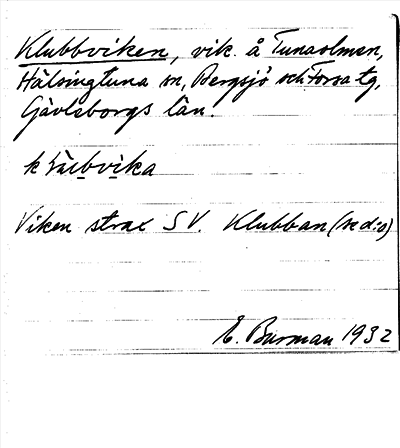 Klubbviken, vik. å Tunaolmen,
Hälsingtuna sn, Bergsjö och Forsa tg,
Gävleborgs län.
Viken strax SV. Klubban (se d:o)
E. Burman 1932